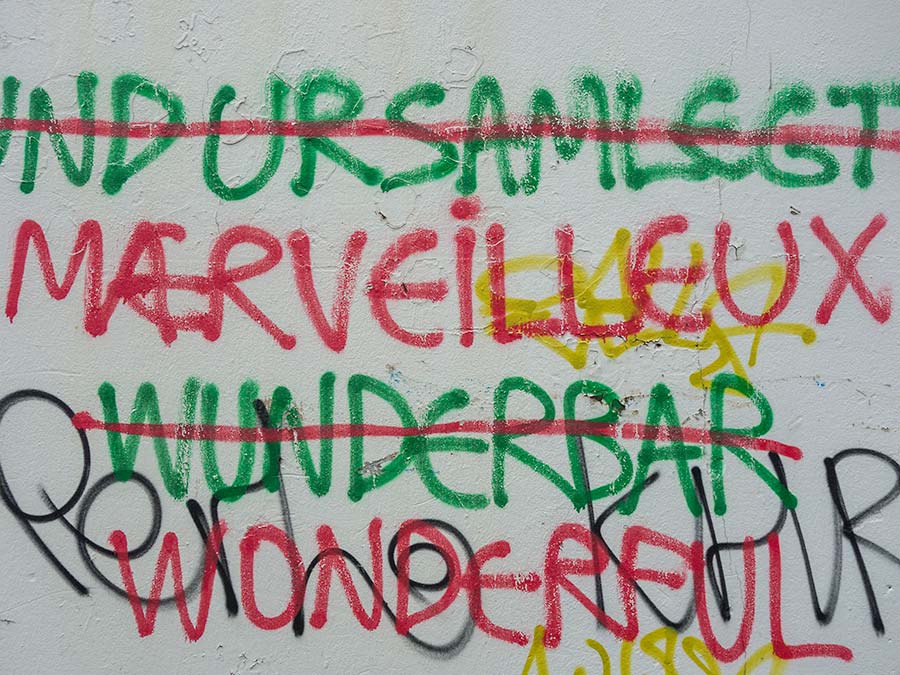 UNDURSAMLEGT
MÆRVEILLEUX
WUNDERBAR
WONDERFUL